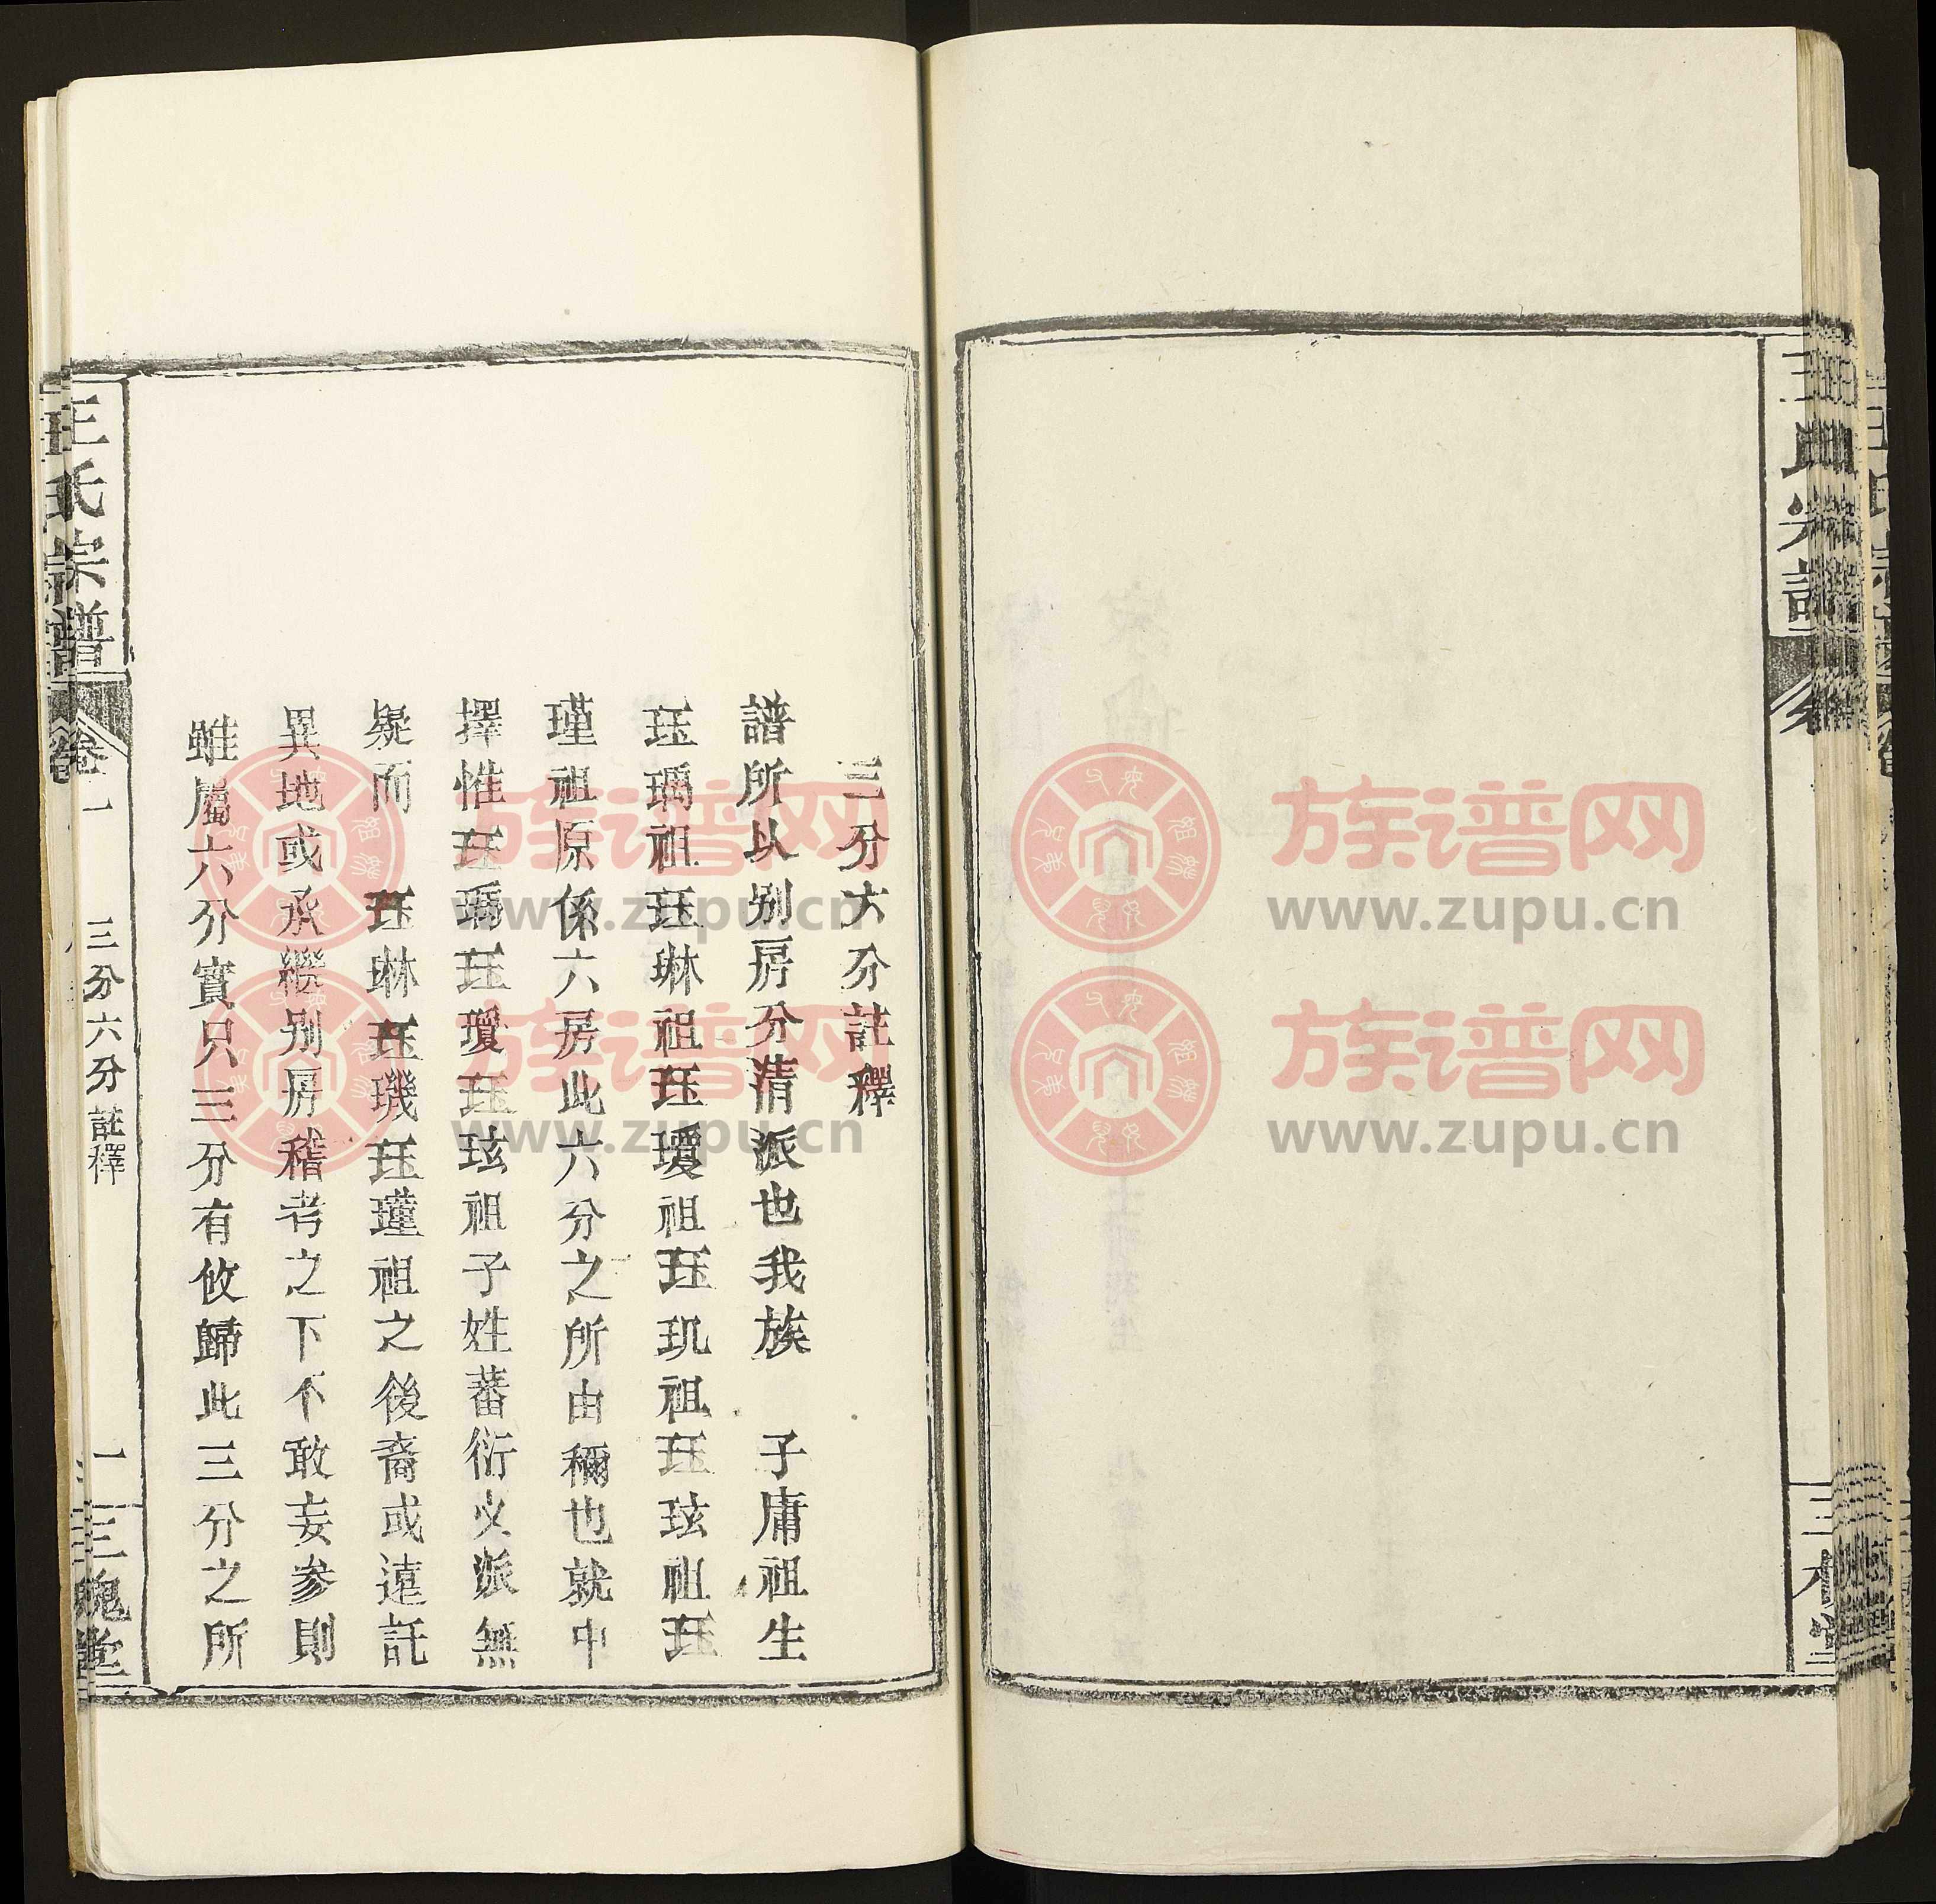 三分六分註釋
譜所以別房分清派也我族　子庸祖生
珏瑀祖珏琳祖珏瓊祖珏玑祖珏玹祖珏
瑾祖原係六房此六分之所由稱也就中
擇惟珏瑀珏瓊珏玹祖子姓蕃衍支派無
疑而　珏琳珏璣珏瑾祖之後裔或遠託
異地或承繼別房稽考之下不敢妄參則
雖屬六分實只三分有攸歸此三分之所
王氏宗譜
卷一
三分六分註釋
一
三槐堂
族谱网
www.zupu.cn
族谱网
www.zupu.cn
族谱网
www.zupu.cn
族谱网
www.zupu.cn